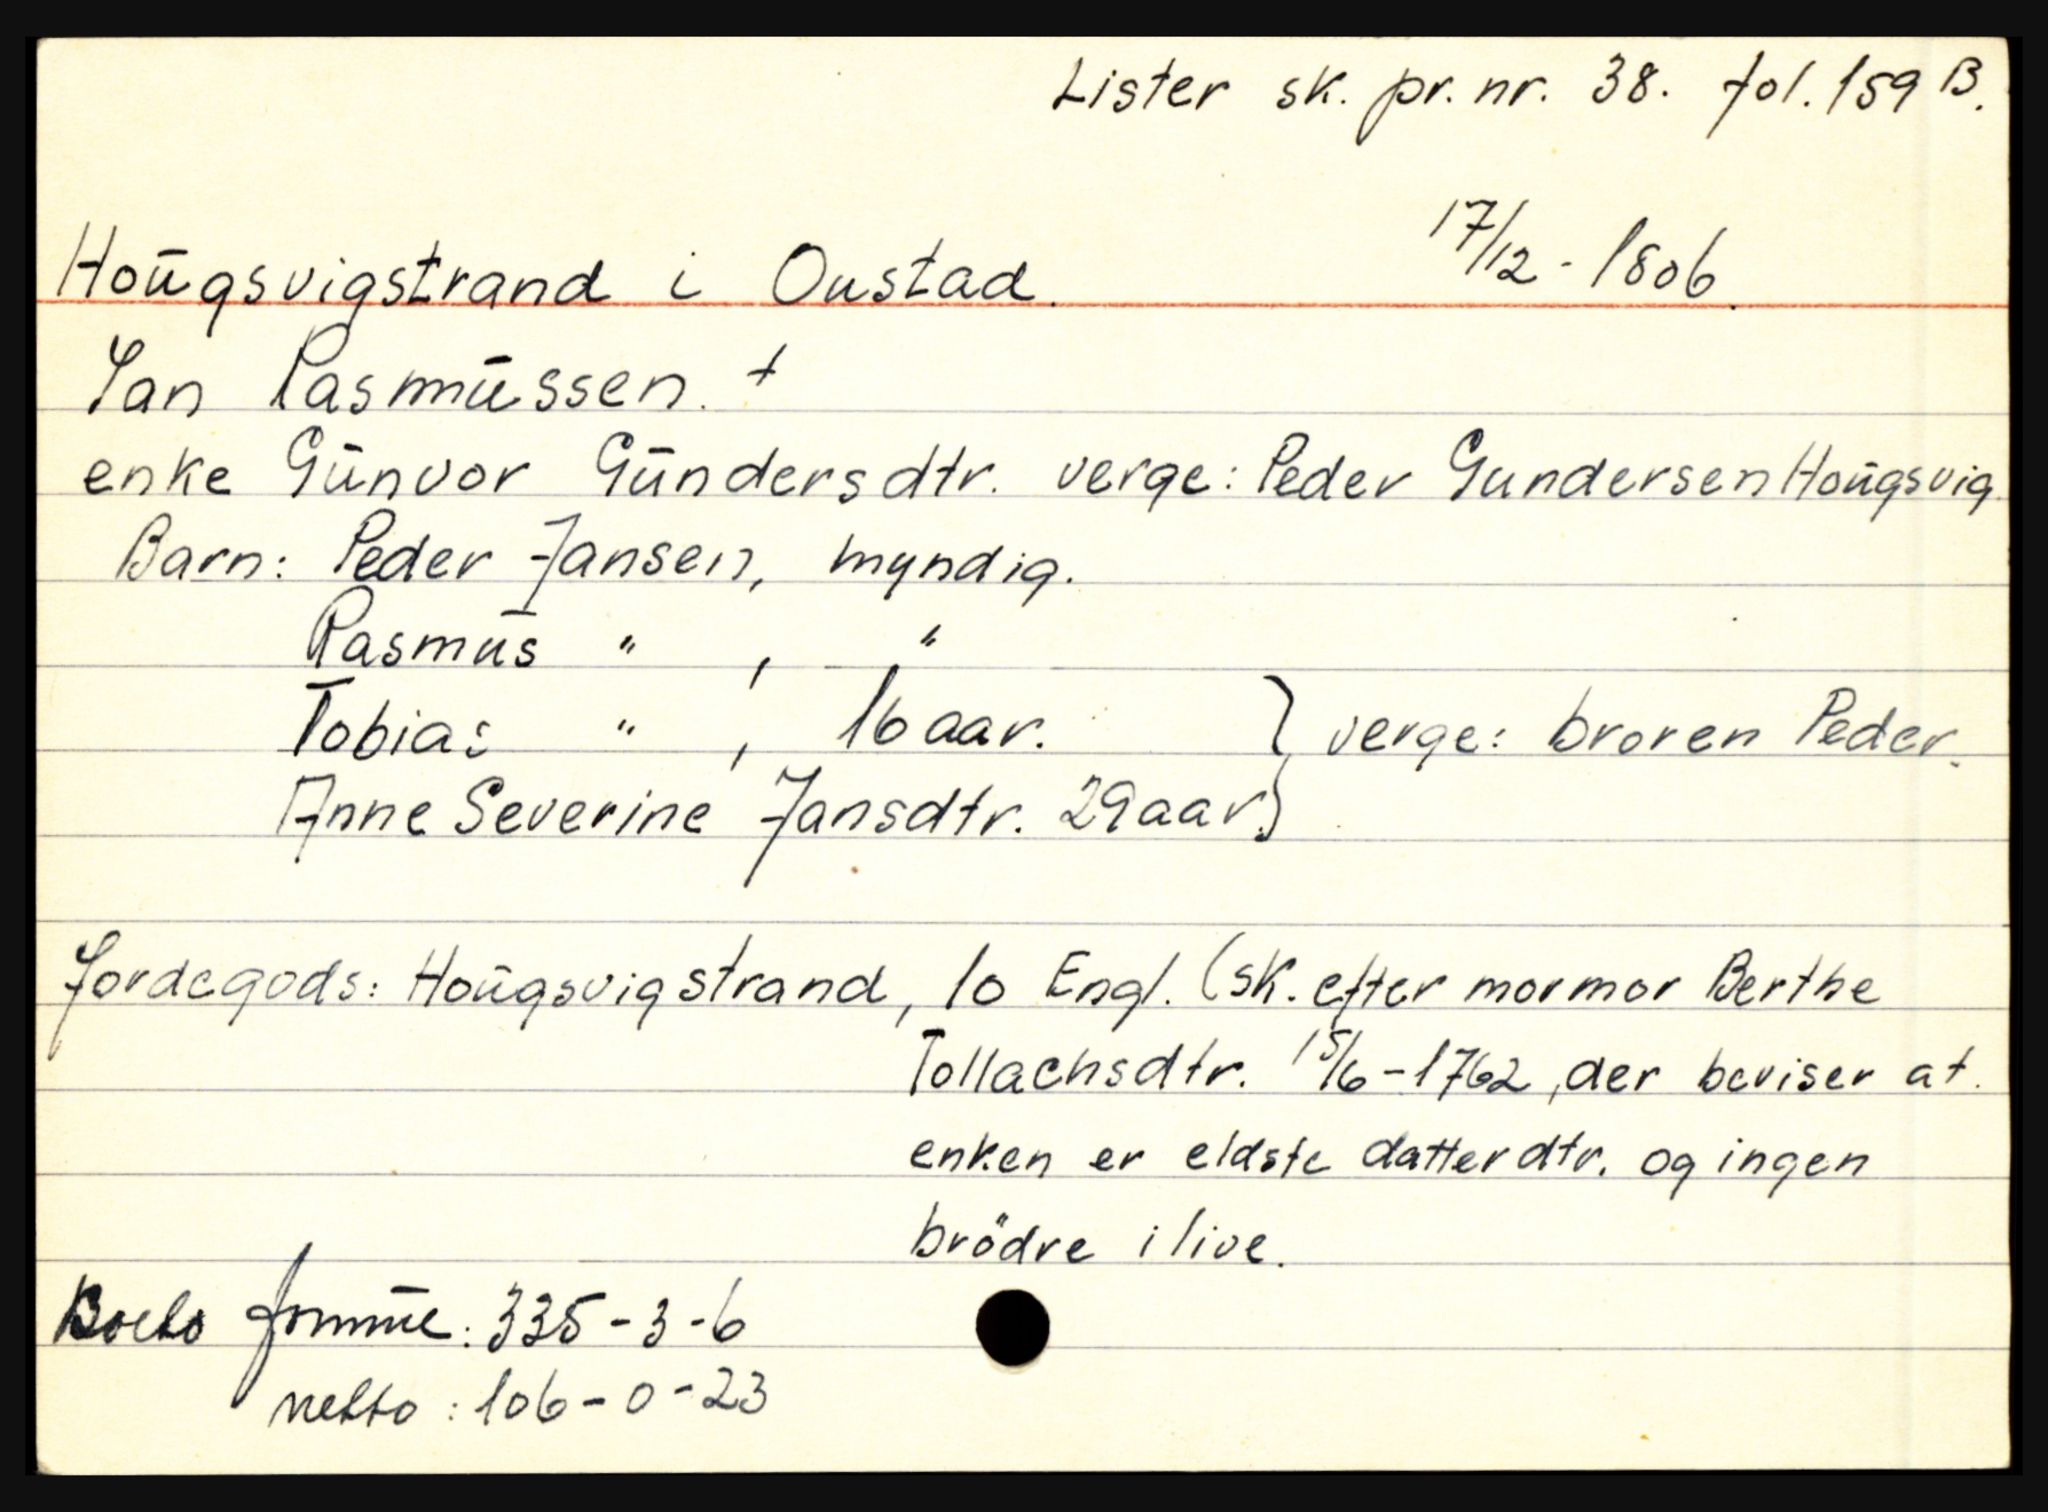 Lister sk. pr. nr. 38. fol. 159 B.
17/12 - 1806.
Hougsvigstrand i Oustad.
Jan Rasmūssen. +
enke Gūnvor Gūndersdtr. verge: Peder Gundersen Hoūgsvig.
Barn: Peder Jansen, myndig.
Rasmūs " , "
Tobias " , 16 aar. } verge: broren Peder.
Anne Severine Jansdtr. 29 aar. }
Jordegods: Hoūgsvigstrand, 10 Engl. (sk. efter mormor Berthe
Tollachsdtr. 15/6 - 1762, der beviser at.
enken er eldste datterdtr. og ingen
brödre i live.
Boets fommūe: 335 - 3 - 6
netto: 106 - 0 - 23